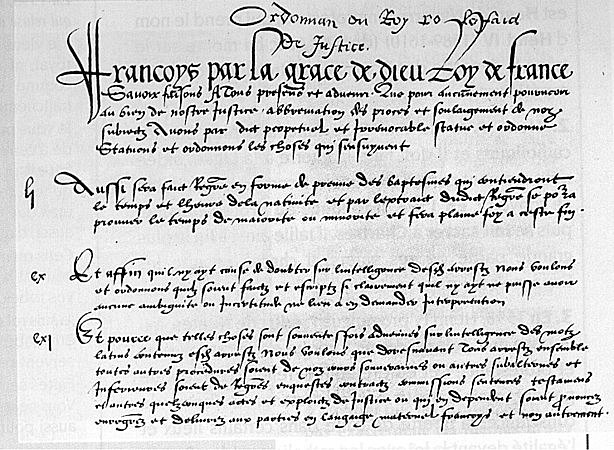 Ordonnan du Roy le faict
De Justice.
Francoys par la grace de dieu Roy de france
Scavoir faisons A Tous presens et advenir Que pour aucunement pourveoir
au bien de nostre Justice abbreviation des proces et soulagement de noz
subiectz Avons par edit perpetuel et Irrevocable statue et ordonne
Statuons et ordonnons les choses qui sensuyvent
li Aussi sera faict Regre en forme de preuve des baptesmes qui contiendront
le temps et lheure de la nativite et par lextraict dudict Regre se pourra
prouver le temps de maiorite ou minorite et fera plaine foy a ceste fin.
cx Et affin quil ny ayt cause de doubter sur lintelligence desd arrestz Nous voulons
et ordonnons quilz soient faictz et escriptz si clairement quil ny ayt ne puisse avoir
aucune ambiguite ou Incertitude ne lieu a en demander Interpretation
cxi Et pource que telles choses sont souventesfois advenues sur lintelligence des motz
latins contenuz esd arrestz Nous voulons que doresnavant Tous arrestz ensemble
toutes autres procedures soient de noz cours souveraines ou autres subalternes et
Inferieures soient de Regres enquestes contractz commissions sentences testamens
et autres quelzconques actes et exploictz de Justice ou qui en dependent soient prononcez
enregrez et delivrez aux parties en langaige maternel francoys et non autrement.